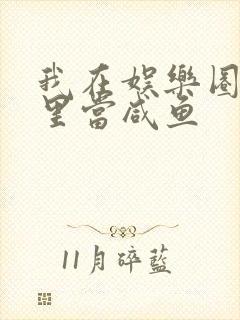 我在娱樂圈
里當咸鱼
11月碎藍